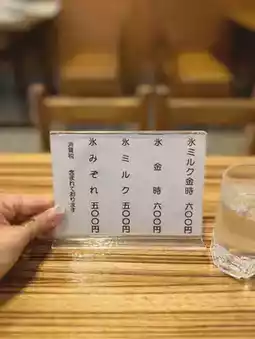 氷ミルク金時 六〇〇円
氷金時 六〇〇円
氷ミルク 五〇〇円
氷みぞれ 五〇〇円
消費税 含まれております